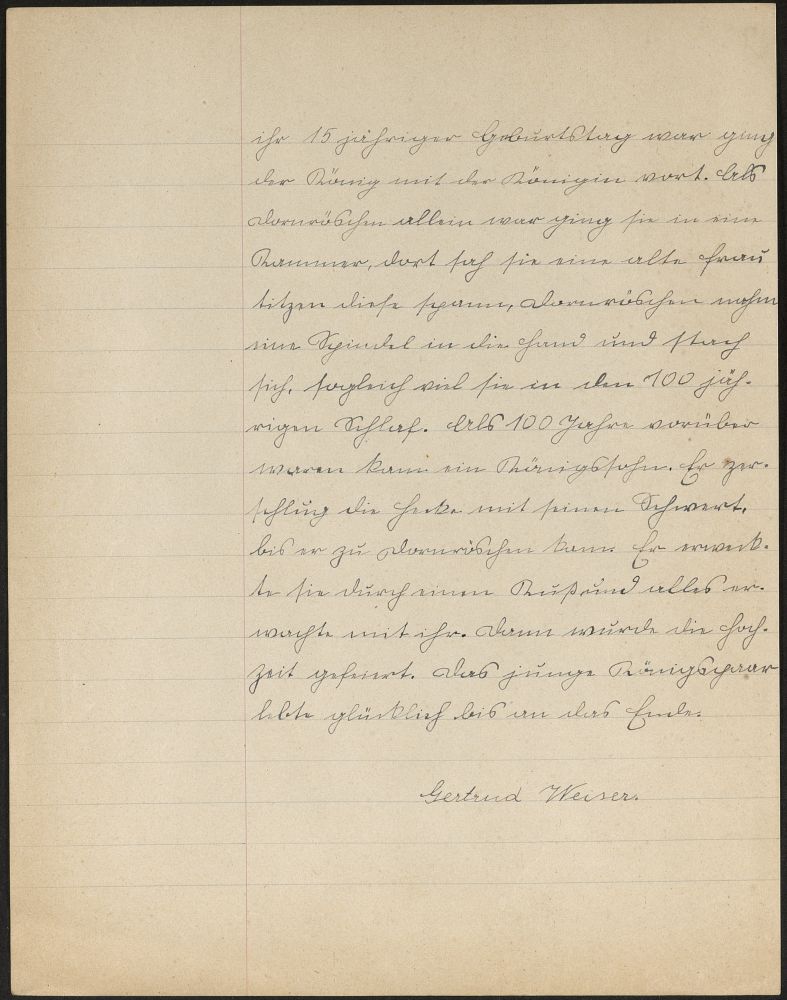 ihr 15 jähriger Geburtstag war ging
der König mit der Königin vort. Als
Dornröschen allein war ging sie in eine
Kammer, dort sah sie eine alte Frau
sitzen diese spann, Dornröschen nahm
eine Spindel in die Hand und stach
sich, sogleich viel sie in den 100 jäh-
rigen Schlaf. Als 100 Jahre vorüber
waren kam ein Königssohn. Er zer-
schlug die Hecke mit seinen Schwert,
bis er zu Dornröschen kam. Er erweck-
te sie durch einen Kuß und alles er-
wachte mit ihr. Dann wurde die Hoch-
zeit gefeiert. Das junge Königspaar
lebte glücklich bis an das Ende.
Gertrud Weiser.